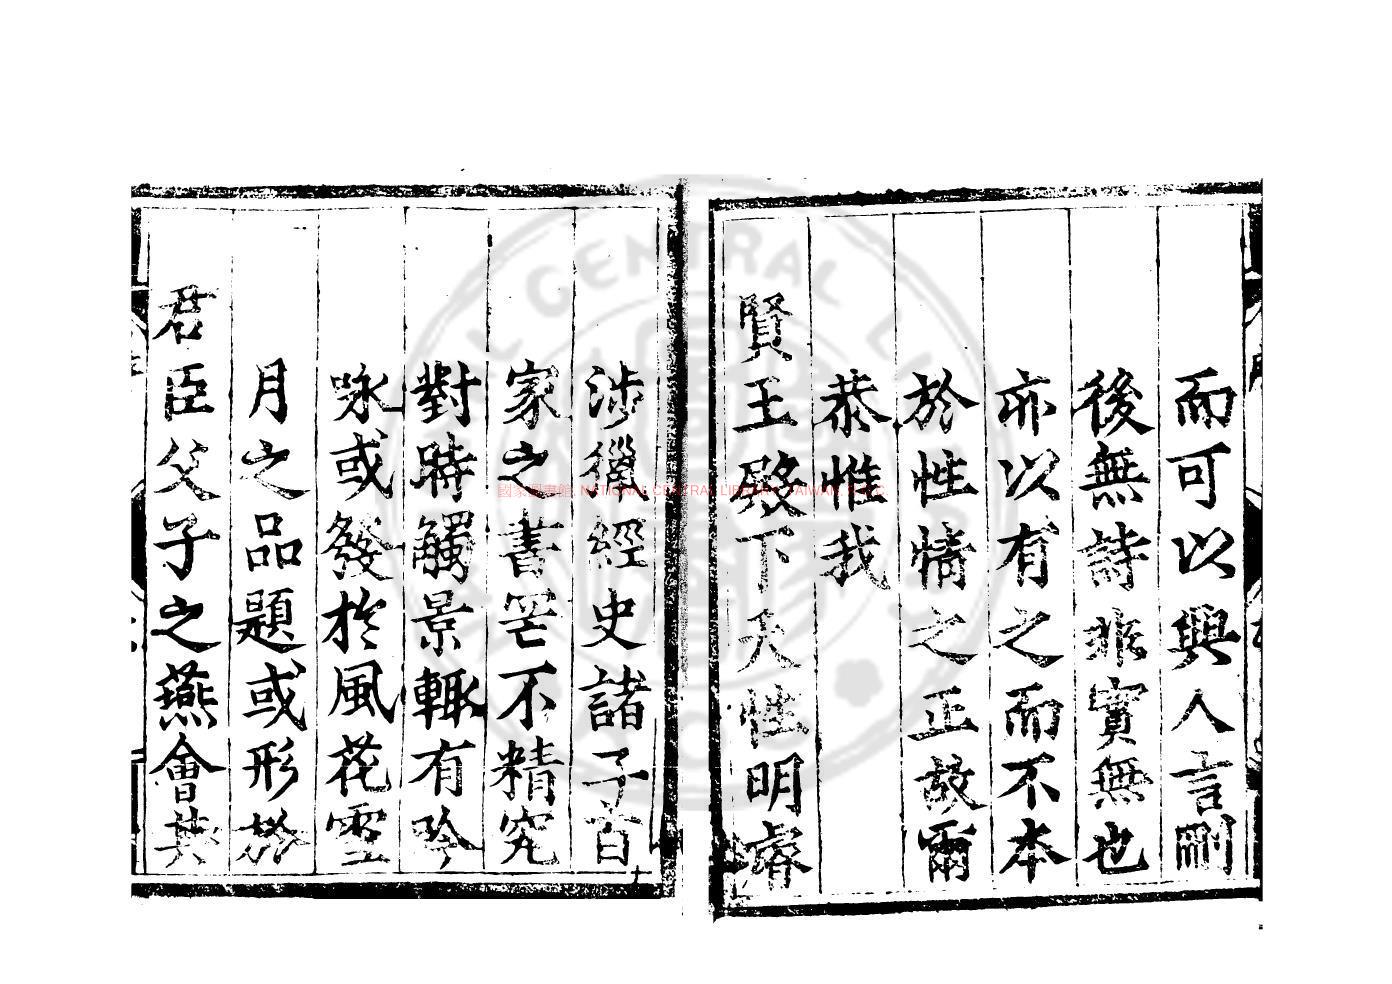 而可以興人言刪
後無詩非實無也
亦以有之而不本
於性情之正故爾
恭惟我
賢王殿下天性明睿
涉獵經史諸子百
家之書罔不精究
對時觸景輒有吟
咏或發於風花雪
月之品題或形於
君臣父子之燕會其
國家圖書館 NATIONAL CENTRAL LIBRARY, TAIWAN, R.O.C.